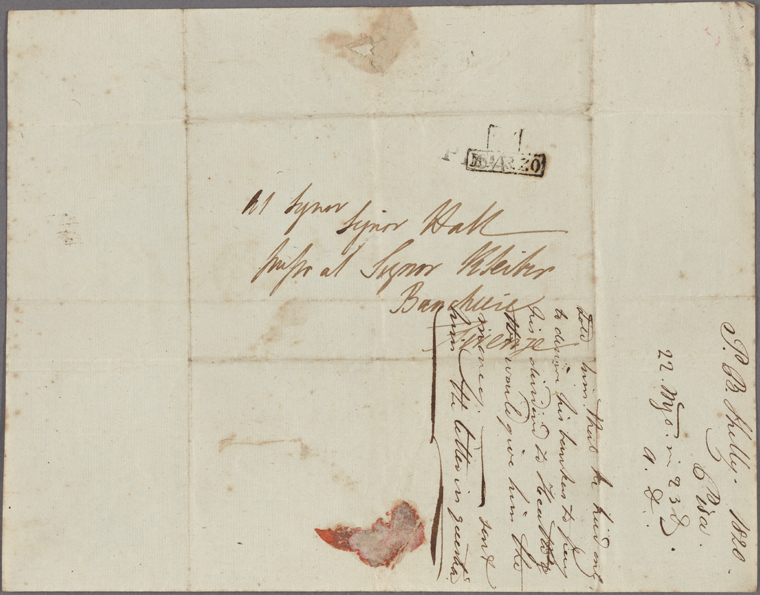 MARZO
Al Signor
Signor Hall
presso al Signor Kleiber
Banchiere
Firenze
Told him that he had only
to desire his bankers to pay
his dividend to Heath &
they would give him the
money. sent
him the letter in question
P. B. Shelly. 1820.
Pisa.
22. Mgo. 23d.
a. d.